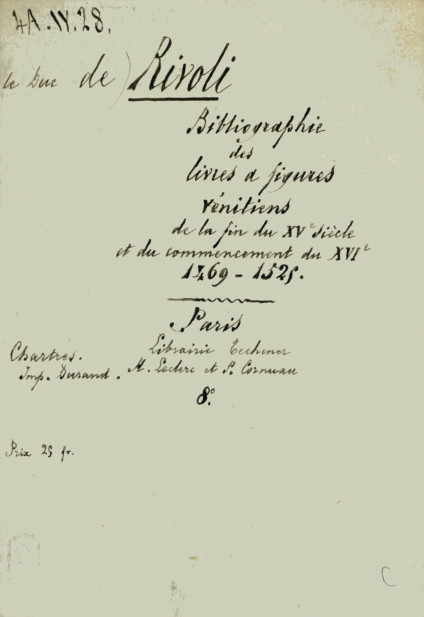 4A.IV.28.
le Duc de) Rivoli
Bibliographie
des
livres a figures
vénitiens
de la fin du XVe siècle
et du commencement du XVIe
1469 - 1525.
Paris
Librairie Techener
H. Leclerc et P. Cornuau
Chartres.
Imp. Durand.
8°.
Prix 25 fr.
C